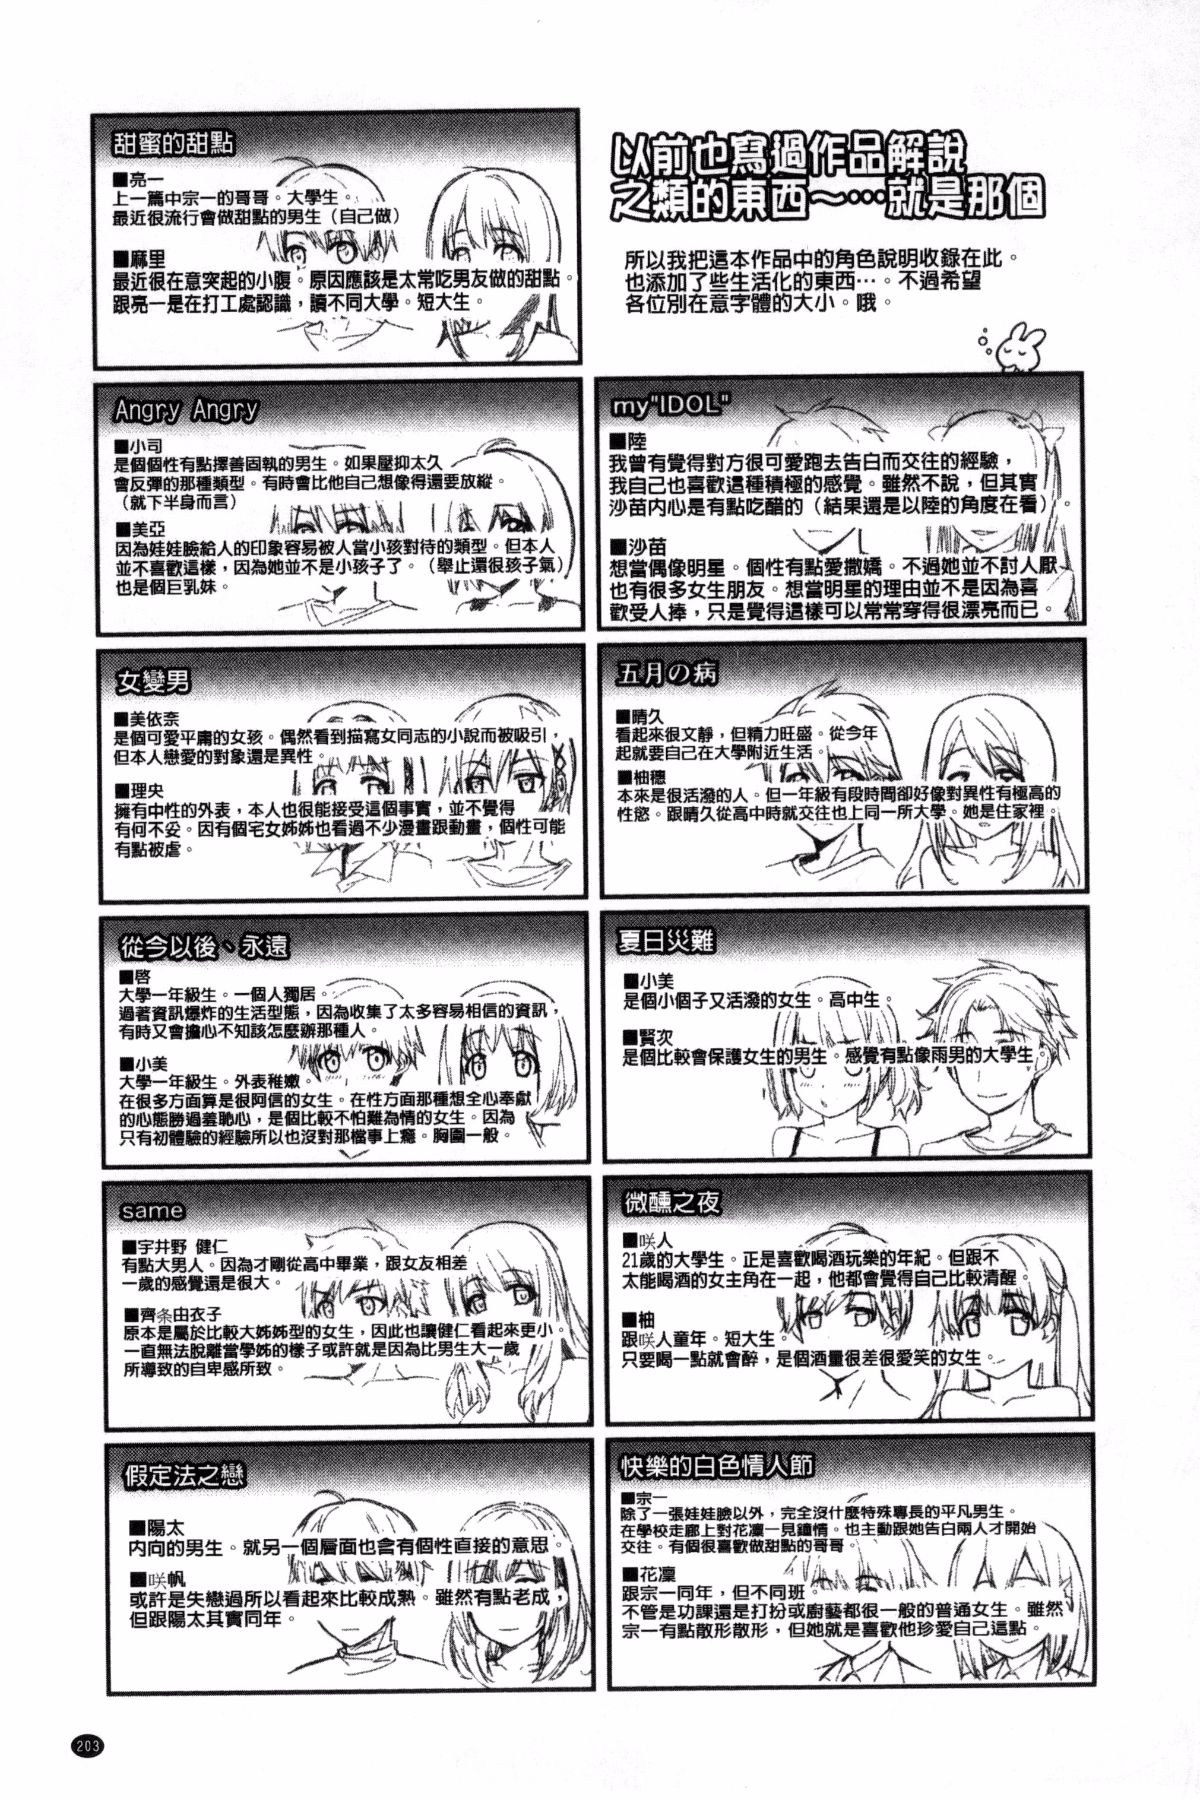 以前也寫過作品解說
之類的東西～…就是那個
所以我把這本作品中的角色說明收錄在此。
也添加了些生活化的東西…。不過希望
各位別在意字體的大小。哦。
my"IDOL"
■陸
我曾有覺得對方很可愛跑去告白而交往的經驗，
我自己也喜歡這種積極的感覺。雖然不說，但其實
沙苗內心是有點吃醋的（結果還是以陸的角度在看）。
■沙苗
想當偶像明星。個性有點愛撒嬌。不過她並不討人厭
也有很多女生朋友。想當明星的理由並不是因為喜
歡受人捧，只是覺得這樣可以常常穿得很漂亮而已。
五月の病
■晴久
看起來很文靜，但精力旺盛。從今年
起就要自己在大學附近生活。
■柚穗
本來是很活潑的人。但一年級有段時間卻好像對異性有極高的
性慾。跟晴久從高中時就交往也上同一所大學。她是住家裡。
夏日災難
■小美
是個小個子又活潑的女生。高中生。
■賢次
是個比較會保護女生的男生。感覺有點像雨男的大學生。
微醺之夜
■咲人
21歲的大學生。正是喜歡喝酒玩樂的年紀。但跟不
太能喝酒的女主角在一起，他都會覺得自己比較清醒。
■柚
跟咲人童年。短大生。
只要喝一點就會醉，是個酒量很差很愛笑的女生。
快樂的白色情人節
■宗一
除了一張娃娃臉以外，完全沒什麼特殊專長的平凡男生。
在學校走廊上對花凜一見鐘情。也主動跟她告白兩人才開始
交往。有個很喜歡做甜點的哥哥。
■花凜
跟宗一同年，但不同班。
不管是功課還是打扮或廚藝都很一般的普通女生。雖然
宗一有點散形散形，但她就是喜歡他珍愛自己這點。
甜蜜的甜點
■亮一
上一篇中宗一的哥哥。大學生。
最近很流行會做甜點的男生（自己做）
■麻里
最近很在意突起的小腹。原因應該是太常吃男友做的甜點。
跟亮一是在打工處認識，讀不同大學。短大生。
Angry Angry
■小司
是個個性有點擇善固執的男生。如果壓抑太久
會反彈的那種類型。有時會比他自己想像得還要放縱。
（就下半身而言）
■美亞
因為娃娃臉給人的印象容易被人當小孩對待的類型。但本人
並不喜歡這樣，因為她並不是小孩子了。（舉止還很孩子氣）
也是個巨乳妹。
女變男
■美依奈
是個可愛平庸的女孩。偶然看到描寫女同志的小說而被吸引，
但本人戀愛的對象還是異性。
■理央
擁有中性的外表，本人也很能接受這個事實，並不覺得
有何不妥。因有個宅女姊姊也看過不少漫畫跟動畫，個性可能
有點被虐。
從今以後、永遠
■啓
大學一年級生。一個人獨居。
過著資訊爆炸的生活型態，因為收集了太多容易相信的資訊，
有時又會擔心不知該怎麼辦那種人。
■小美
大學一年級生。外表稚嫩。
在很多方面算是很阿信的女生。在性方面那種想全心奉獻
的心態勝過羞恥心，是個比較不怕難為情的女生。因為
只有初體驗的經驗所以也沒對那檔事上癮。胸圍一般。
same
■宇井野 健仁
有點大男人。因為才剛從高中畢業，跟女友相差
一歲的感覺還是很大。
■齊条由衣子
原本是屬於比較大姊姊型的女生，因此也讓健仁看起來更小。
一直無法脫離當學姊的樣子或許就是因為比男生大一歲
所導致的自卑感所致。
假定法之戀
■陽太
內向的男生。就另一個層面也會有個性直接的意思。
■咲帆
或許是失戀過所以看起來比較成熟。雖然有點老成，
但跟陽太其實同年。
203